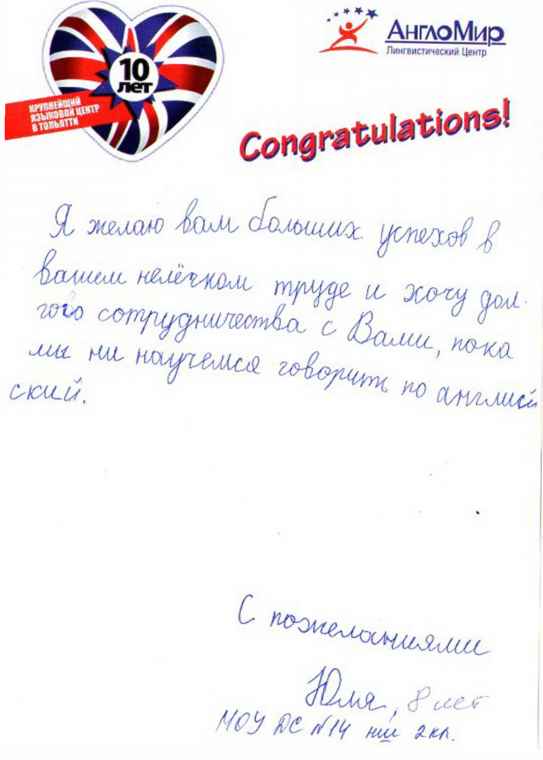 10
лет
КРУПНЕЙШИЙ
ЯЗЫКОВОЙ ЦЕНТР
В ТОЛЬЯТТИ
АнглоМир
Лингвистический Центр
Congratulations!
Я желаю вам больших успехов в
вашем нелёгком труде и хочу дол-
гого сотрудничества с Вами, пока
мы ни научемся говорить по англий
ский.
С пожеланиями
Юля, 8 лет
МОУ ДС №14 нш 2кл.